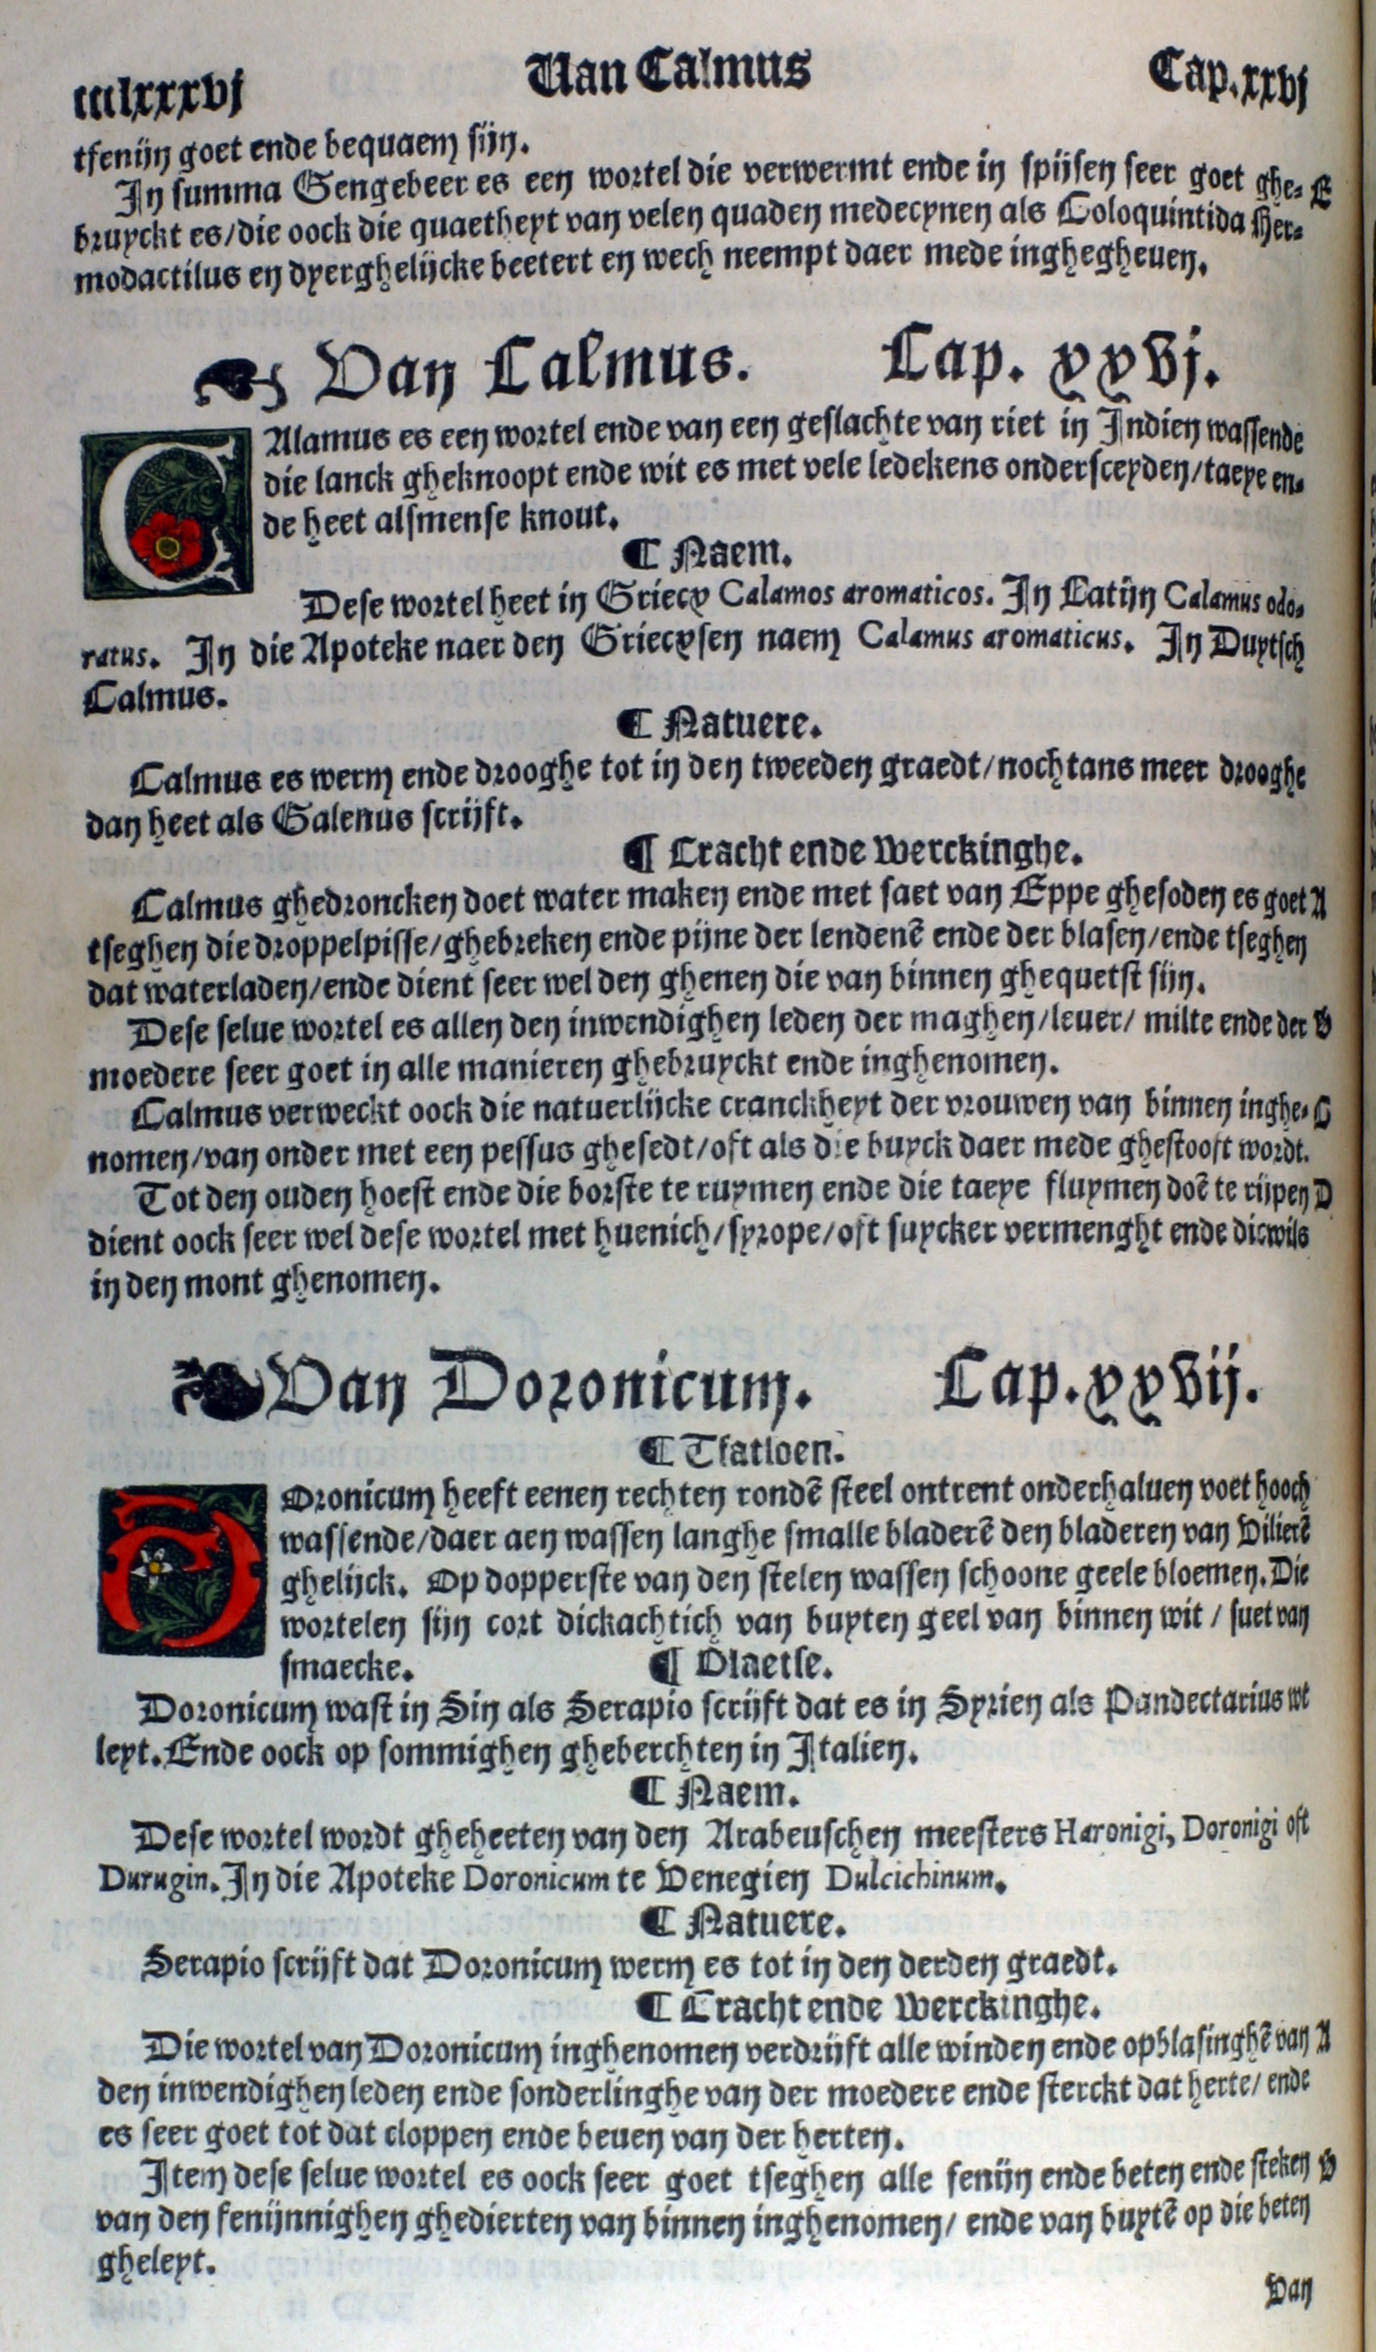 ccclxxxvj Van Calmus Cap. xxvj
tfenijn goet ende bequaem sijn.
In summa Gengebeer es een wortel die verwermt ende in spijsen seer goet ghe- E
bruyckt es/die oock die quaetheyt van velen quaden medecynen als Coloquintida Her-
modactilus en dyerghelijcke beetert en wech neempt daer mede inghegheuen.
Van Calmus. Cap. xxvj.
CAlamus es een wortel ende van een geslachte van riet in Indien wassende
die lanck gheknoopt ende wit es met vele ledekens ondersceyden/taeye en-
de heet alsmense knout.
¶ Naem.
Dese wortel heet in Griecx Calamos aromaticos. In Latijn Calamus odo-
ratus. In die Apoteke naer den Griecxsen naem Calamus aromaticus. In Duytsch
Calmus.
¶ Natuere.
Calmus es werm ende drooghe tot in den tweeden graedt/nochtans meer drooghe
dan heet als Galenus scrijft.
¶ Cracht ende Werckinghe.
Calmus ghedroncken doet water maken ende met saet van Eppe ghesoden es goet A
tseghen die droppelpisse/ghebreken ende pijne der lendenē ende der blasen/ende tseghen
dat waterladen/ende dient seer wel den ghenen die van binnen ghequetst sijn.
Dese selue wortel es allen den inwendighen leden der maghen/leuer/ milte ende der B
moedere seer goet in alle manieren ghebruyckt ende inghenomen.
Calmus verweckt oock die natuerlijcke cranckheyt der vrouwen van binnen inghe- C
nomen/van onder met een pessus ghesedt/oft als die buyck daer mede ghestooft wordt.
Tot den ouden hoest ende die borste te ruymen ende die taeye fluymen doē te rijpen D
dient oock seer wel dese wortel met huenich/syrope/oft suycker vermenght ende dicwils
in den mont ghenomen.
Van Doronicum. Cap. xxvij.
¶ Tfatsoen.
DOronicum heeft eenen rechten rondē steel ontrent onderhaluen voet hooch
wassende/daer aen wassen langhe smalle bladerē den bladeren van Vilierē
ghelijck. Op dopperste van den stelen wassen schoone geele bloemen. Die
wortelen sijn cort dickachtich van buyten geel van binnen wit / suet van
smaecke. ¶ Plaetse.
Doronicum wast in Sin als Serapio scrijft dat es in Syrien als Pandectarius wt
leyt. Ende oock op sommighen gheberchten in Italien.
¶ Naem.
Dese wortel wordt gheheeten van den Arabeuschen meesters Haronigi, Doronigi oft
Durugin. In die Apoteke Doronicum te Venegien Dulcichinum.
¶ Natuere.
Serapio scrijft dat Doronicum werm es tot in den derden graedt.
¶ Cracht ende Werckinghe.
Die wortel van Doronicum inghenomen verdrijft alle winden ende opblasinghē van A
den inwendighen leden ende sonderlinghe van der moedere ende sterckt dat herte/ ende
es seer goet tot dat cloppen ende beuen van der herten.
Item dese selue wortel es oock seer goet tseghen alle fenijn ende beten ende steken B
van den fenijnnighen ghedierten van binnen inghenomen/ ende van buytē op die beten
gheleyt.
Van